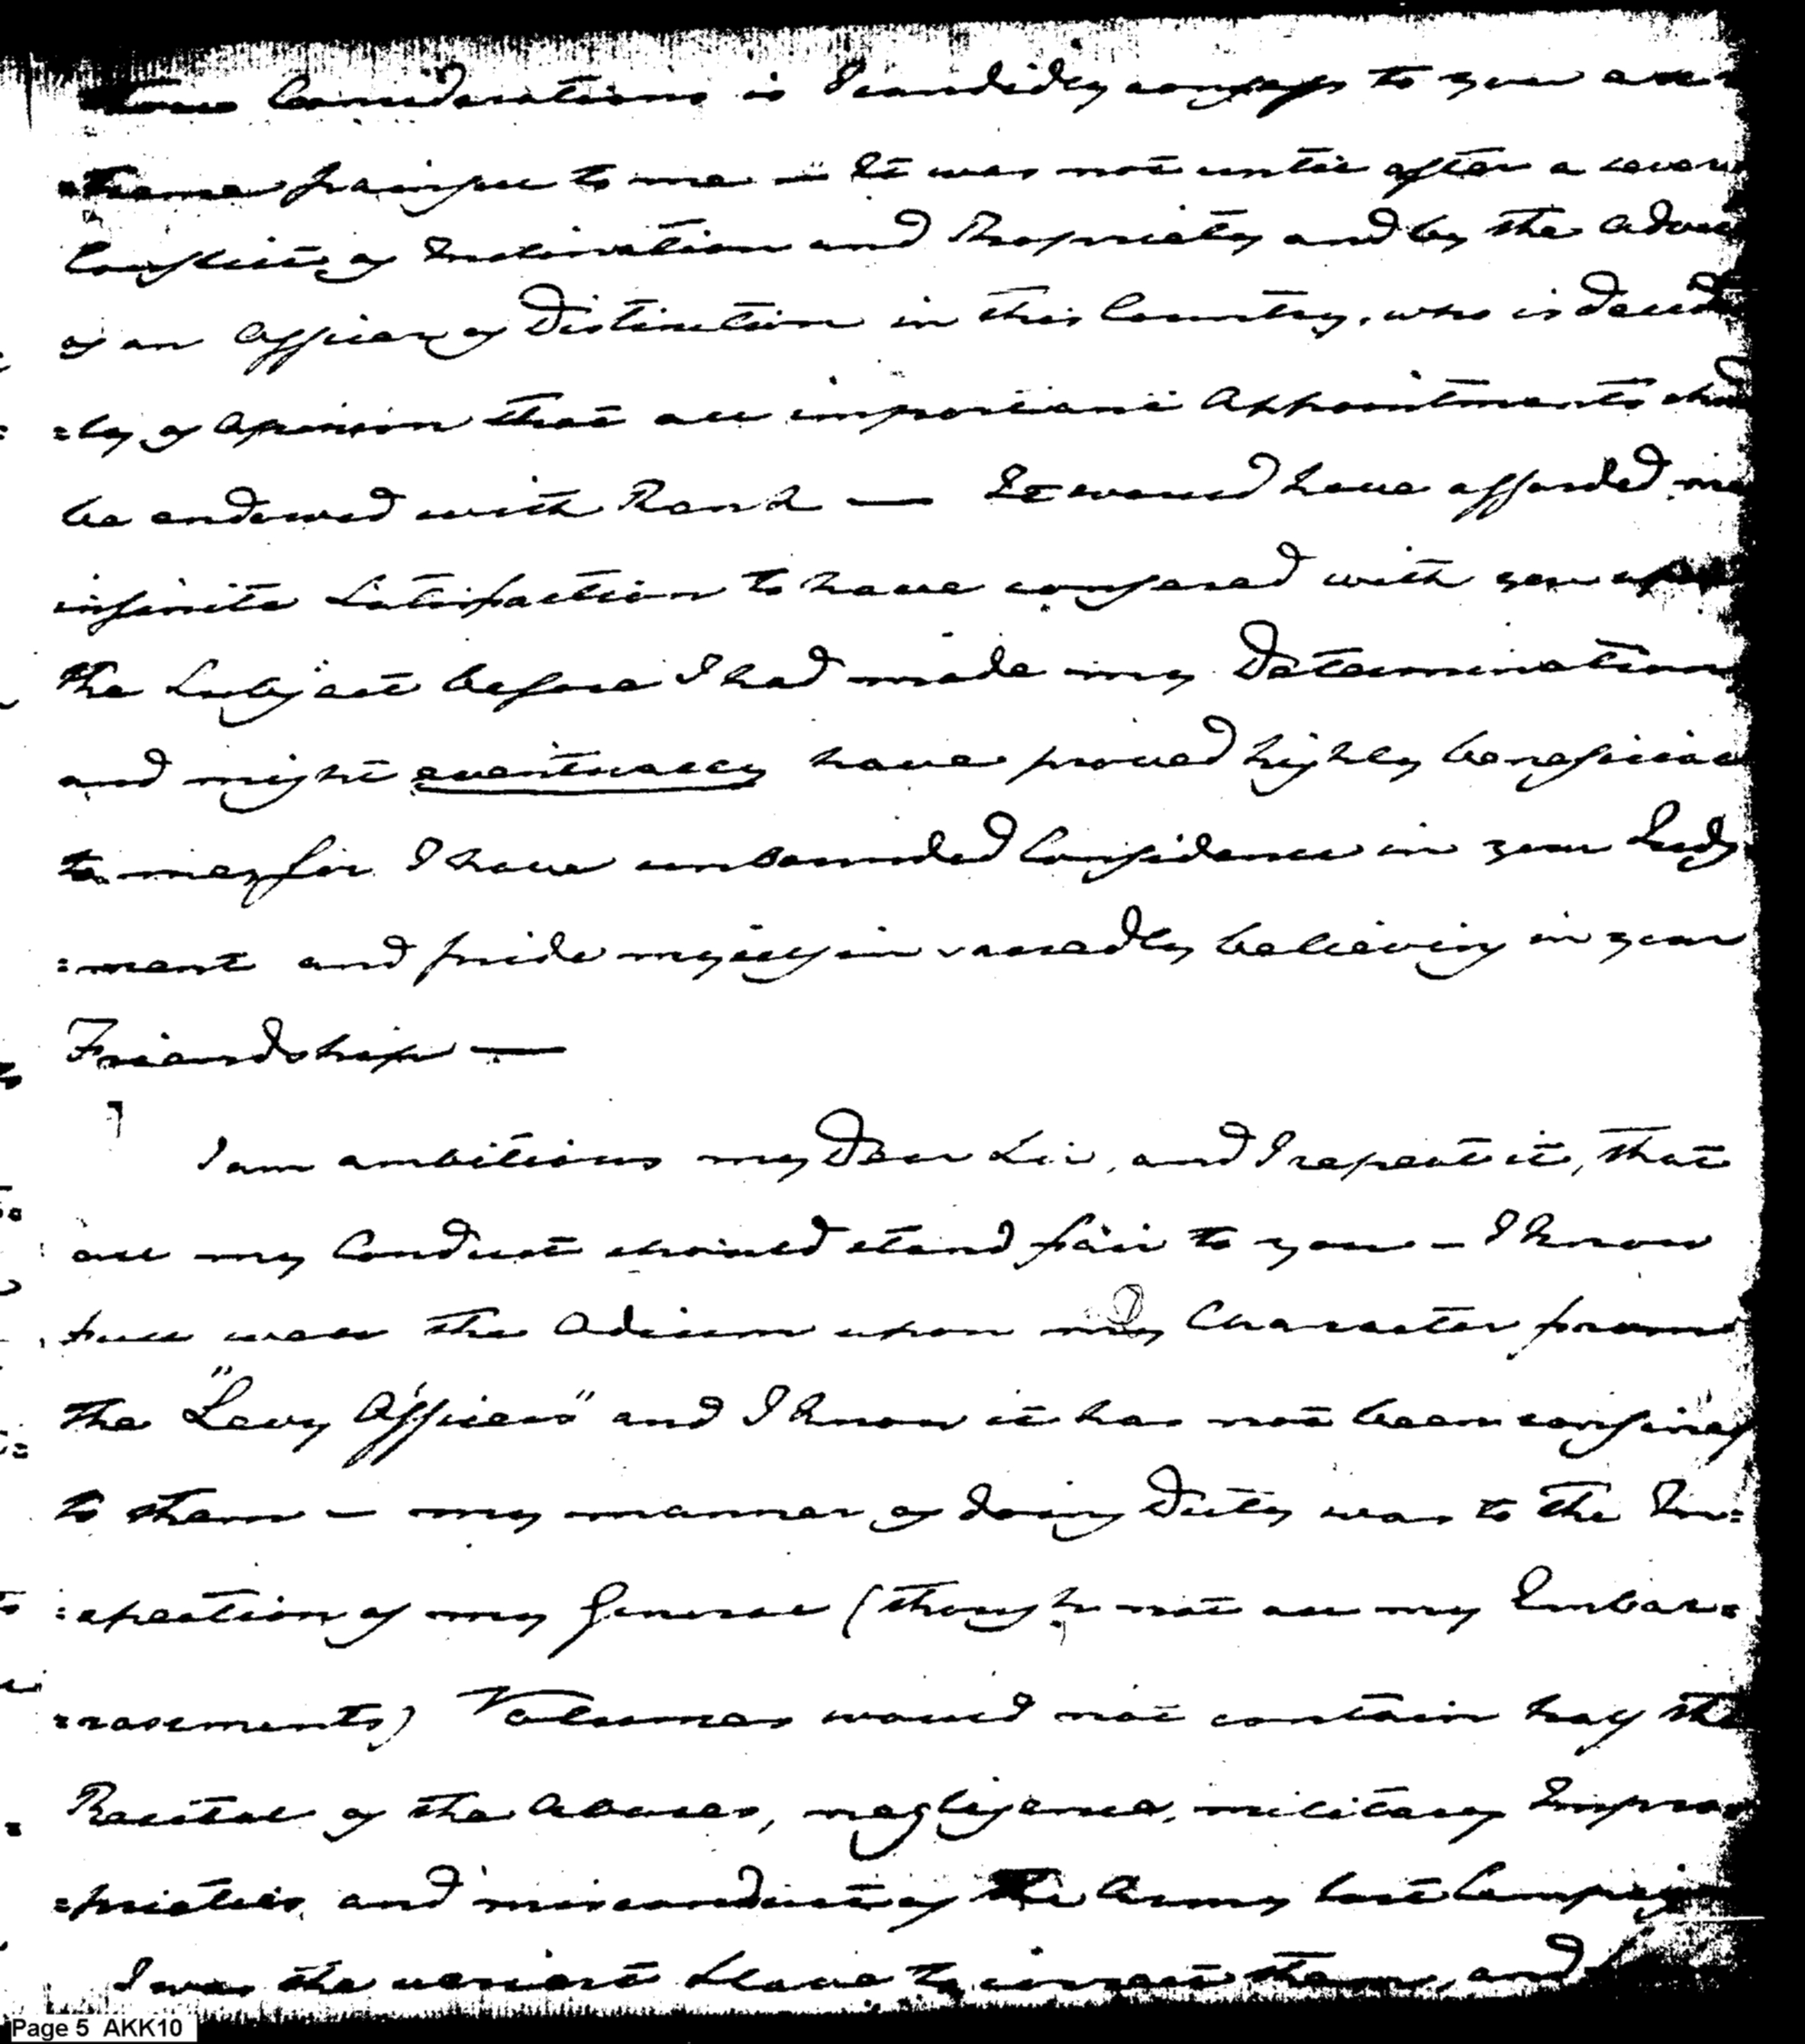 Considerations is I candidly confess to you ex=
=treme painful to me — It was not until after a severe
Conflict of Inclination and Propriety and by the advice
of an Officer of Distinction in this Country, who is decided
=ly of Opinion that all important Appointments shd
be endowed with Rank — It would have afforded me
infinite Satisfaction to have confered with you upon
the Subject before I had made my Determination
and might eventually have proved highly beneficial
to me, for I have unbounded Confidence in your Judg
=ment and pride myself in sacredly believing in your
Friendship —
I am ambitious my Dear Sir, and I repeat it, that
all my Conduct should stand fair to you - I know
full well the Odium upon my Character from
the "Levy Officers" and I know it has not been confined
to them - my manner of doing Duty was to the In=
=spection of my General (though not all my Embar=
=rasments) Volumes would not contain half the
Recital of the Abuses, negligence, military Impro
=prieties, and misconduct of the Army last Campaign
I was the veriest Slave to correct them, and
Page 5 AKK10